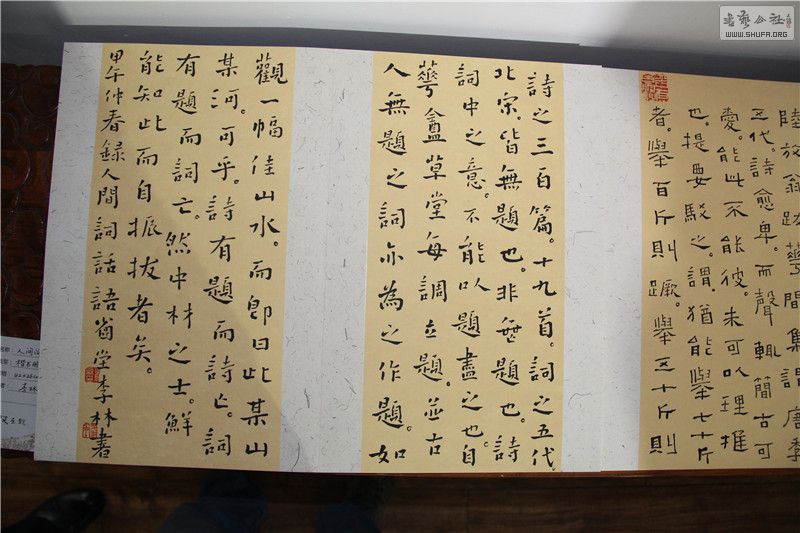 陸放翁跋蕐間集謂唐季
五代。詩愈卑。而聲輒簡古可
愛。能此不能彼。未可以理推
也。提要駁之。謂猶能舉七十斤
者。舉百斤則蹶。舉五十斤則
詩之三百篇。十九首。詞之五代
北宋。皆無題也。非無題也。詩
詞中之意。不能以題盡之也。自
蕐盦草堂每調立題。並古
人無題之詞亦為之作題。如
觀一幅佳山水。而即曰此某山
某河。可乎。詩有題而詩亡。詞
有題而詞亡。然中材之士。鮮
能知此而自振拔者矣。
甲午仲春錄人間詞話語堂李林書
書藝公社
WWW.SHUFA.ORG